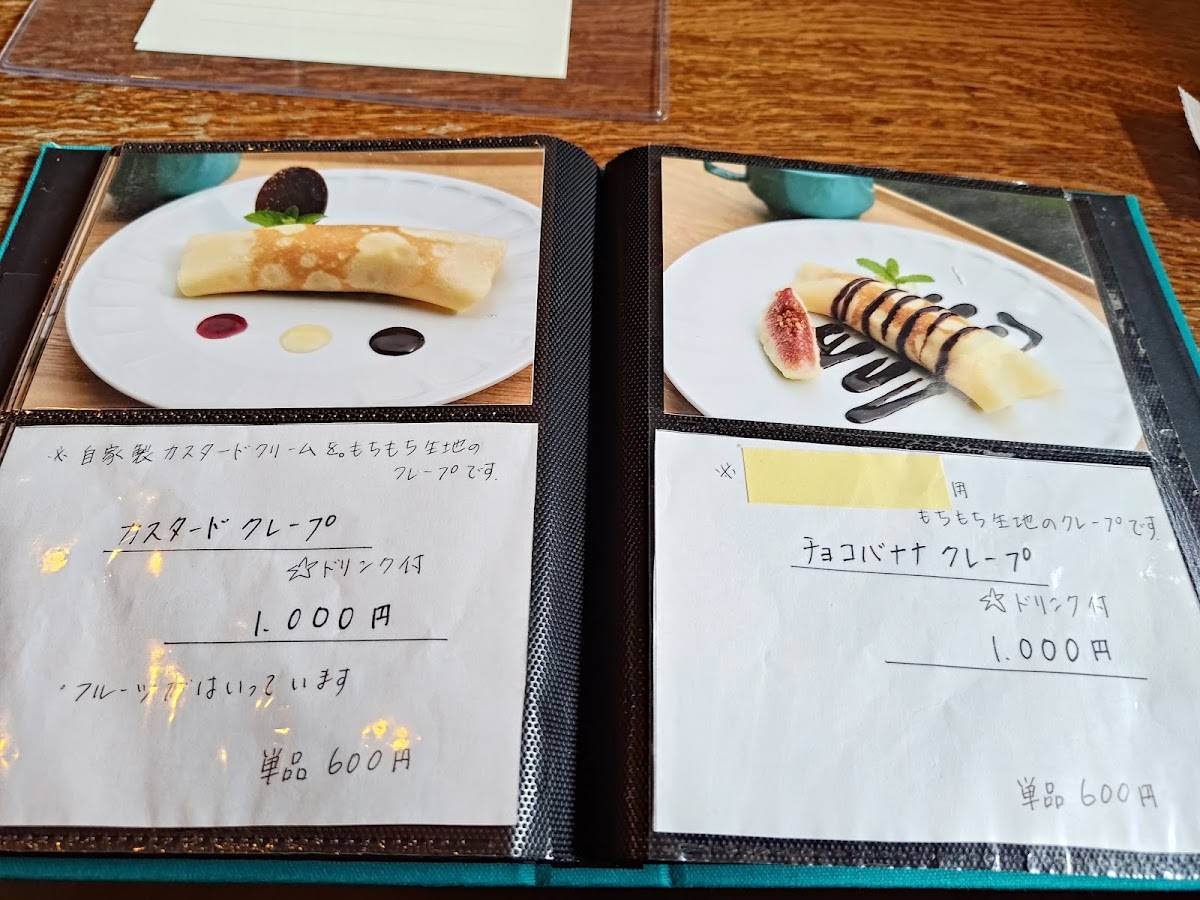 ※ 自家製カスタードクリームを。もちもち生地の
クレープです。
カスタードクレープ
☆ドリンク付
1.000円
・フルーツがはいっています
単品 600円
※
用
もちもち生地のクレープです。
チョコバナナクレープ
☆ドリンク付
1.000円
単品 600円